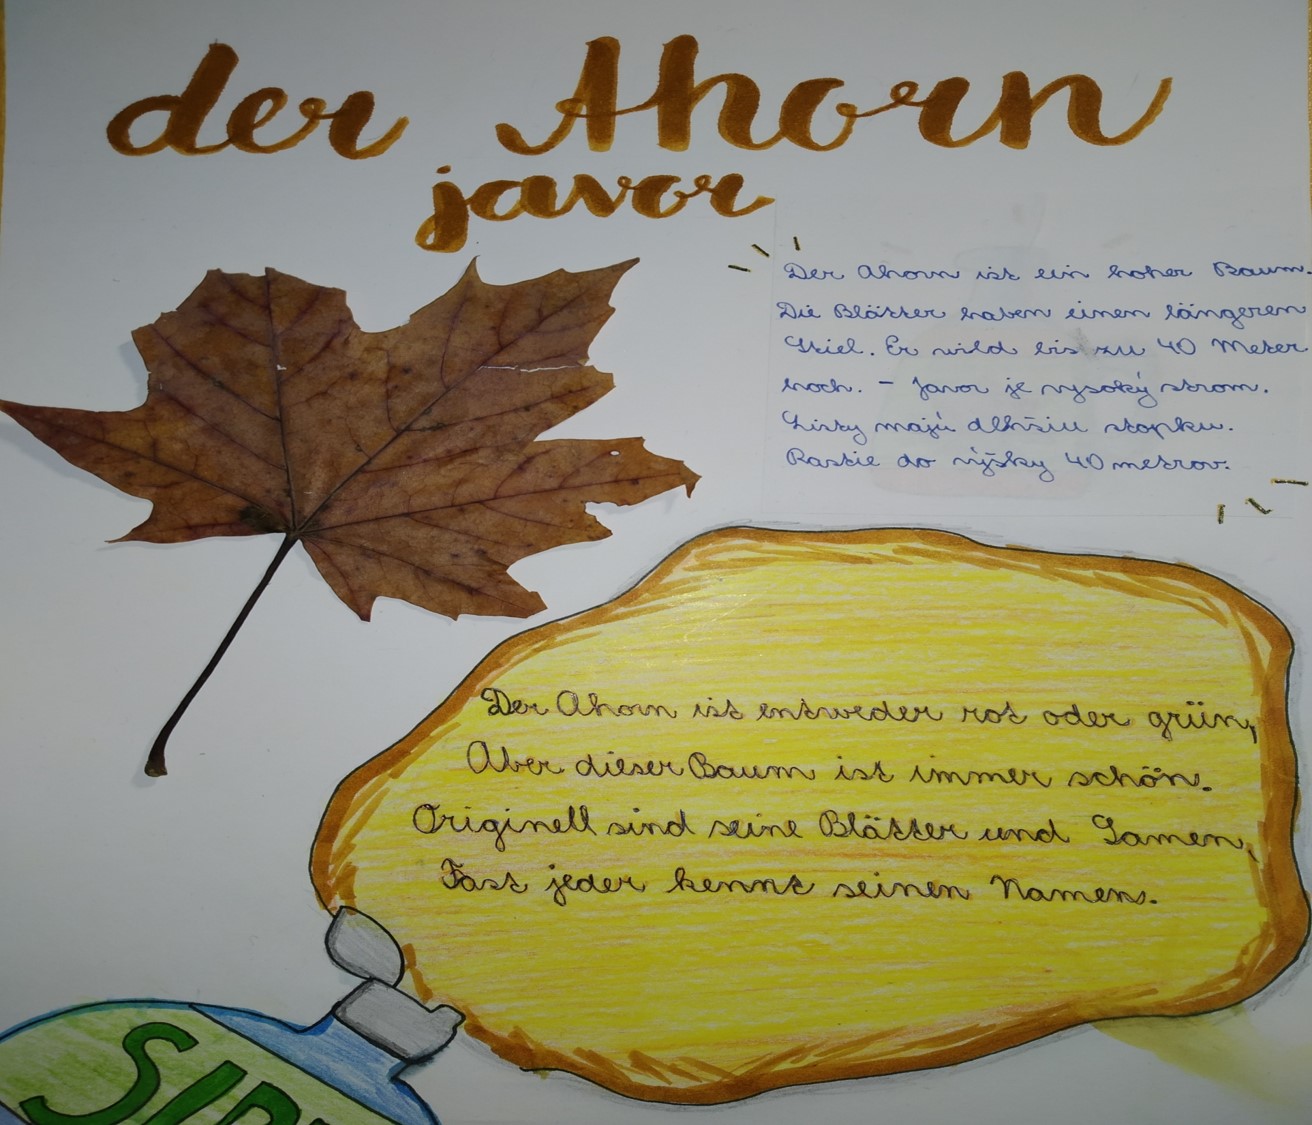 der Ahorn
javor
Der Ahorn ist ein hoher Baum.
Die Blätter haben einen längeren
Stiel. Er wild bis zu 40 Meter
hoch. - Javor je vysoký strom.
Listy majú dlhšiu stopku.
Rastie do výšky 40 metrov.
Der Ahorn ist entweder rot oder grün,
Aber dieser Baum ist immer schön.
Originell sind seine Blätter und Samen,
Fast jeder kennt seinen Namen.